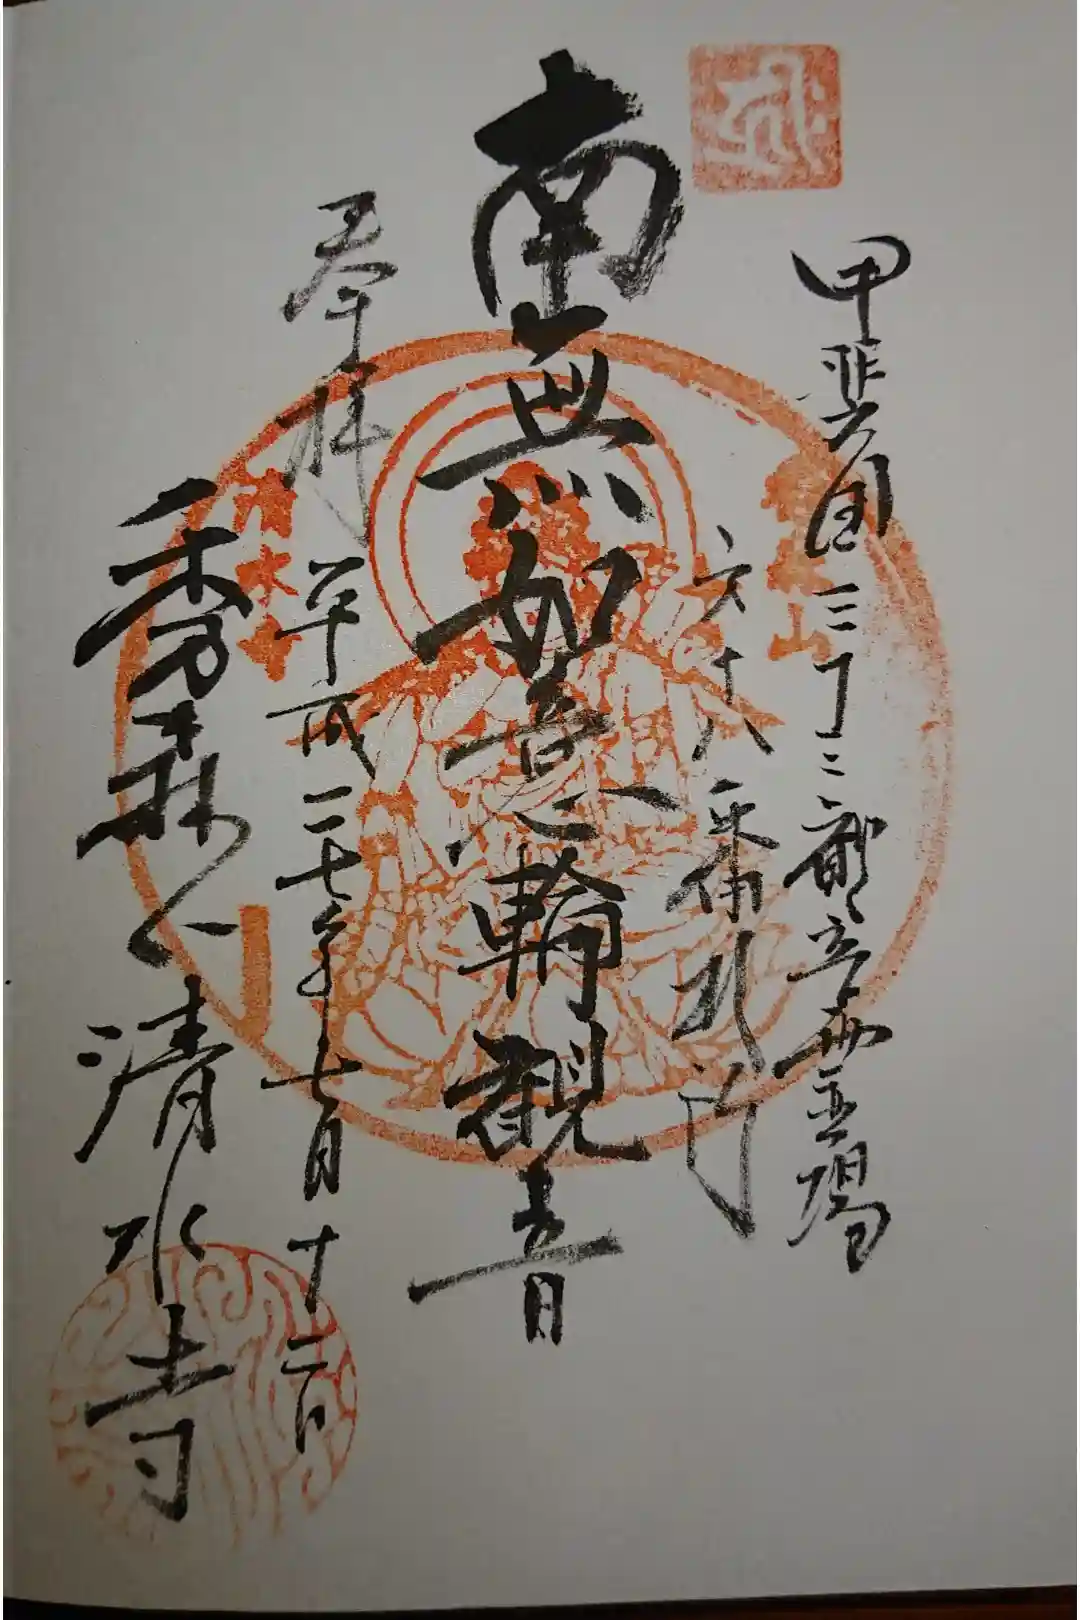 甲斐国三十三観音霊場
六十八番札所
南無如意輪観音
奉拝 平成二七年七月十二日
秀森山清水寺
清水寺